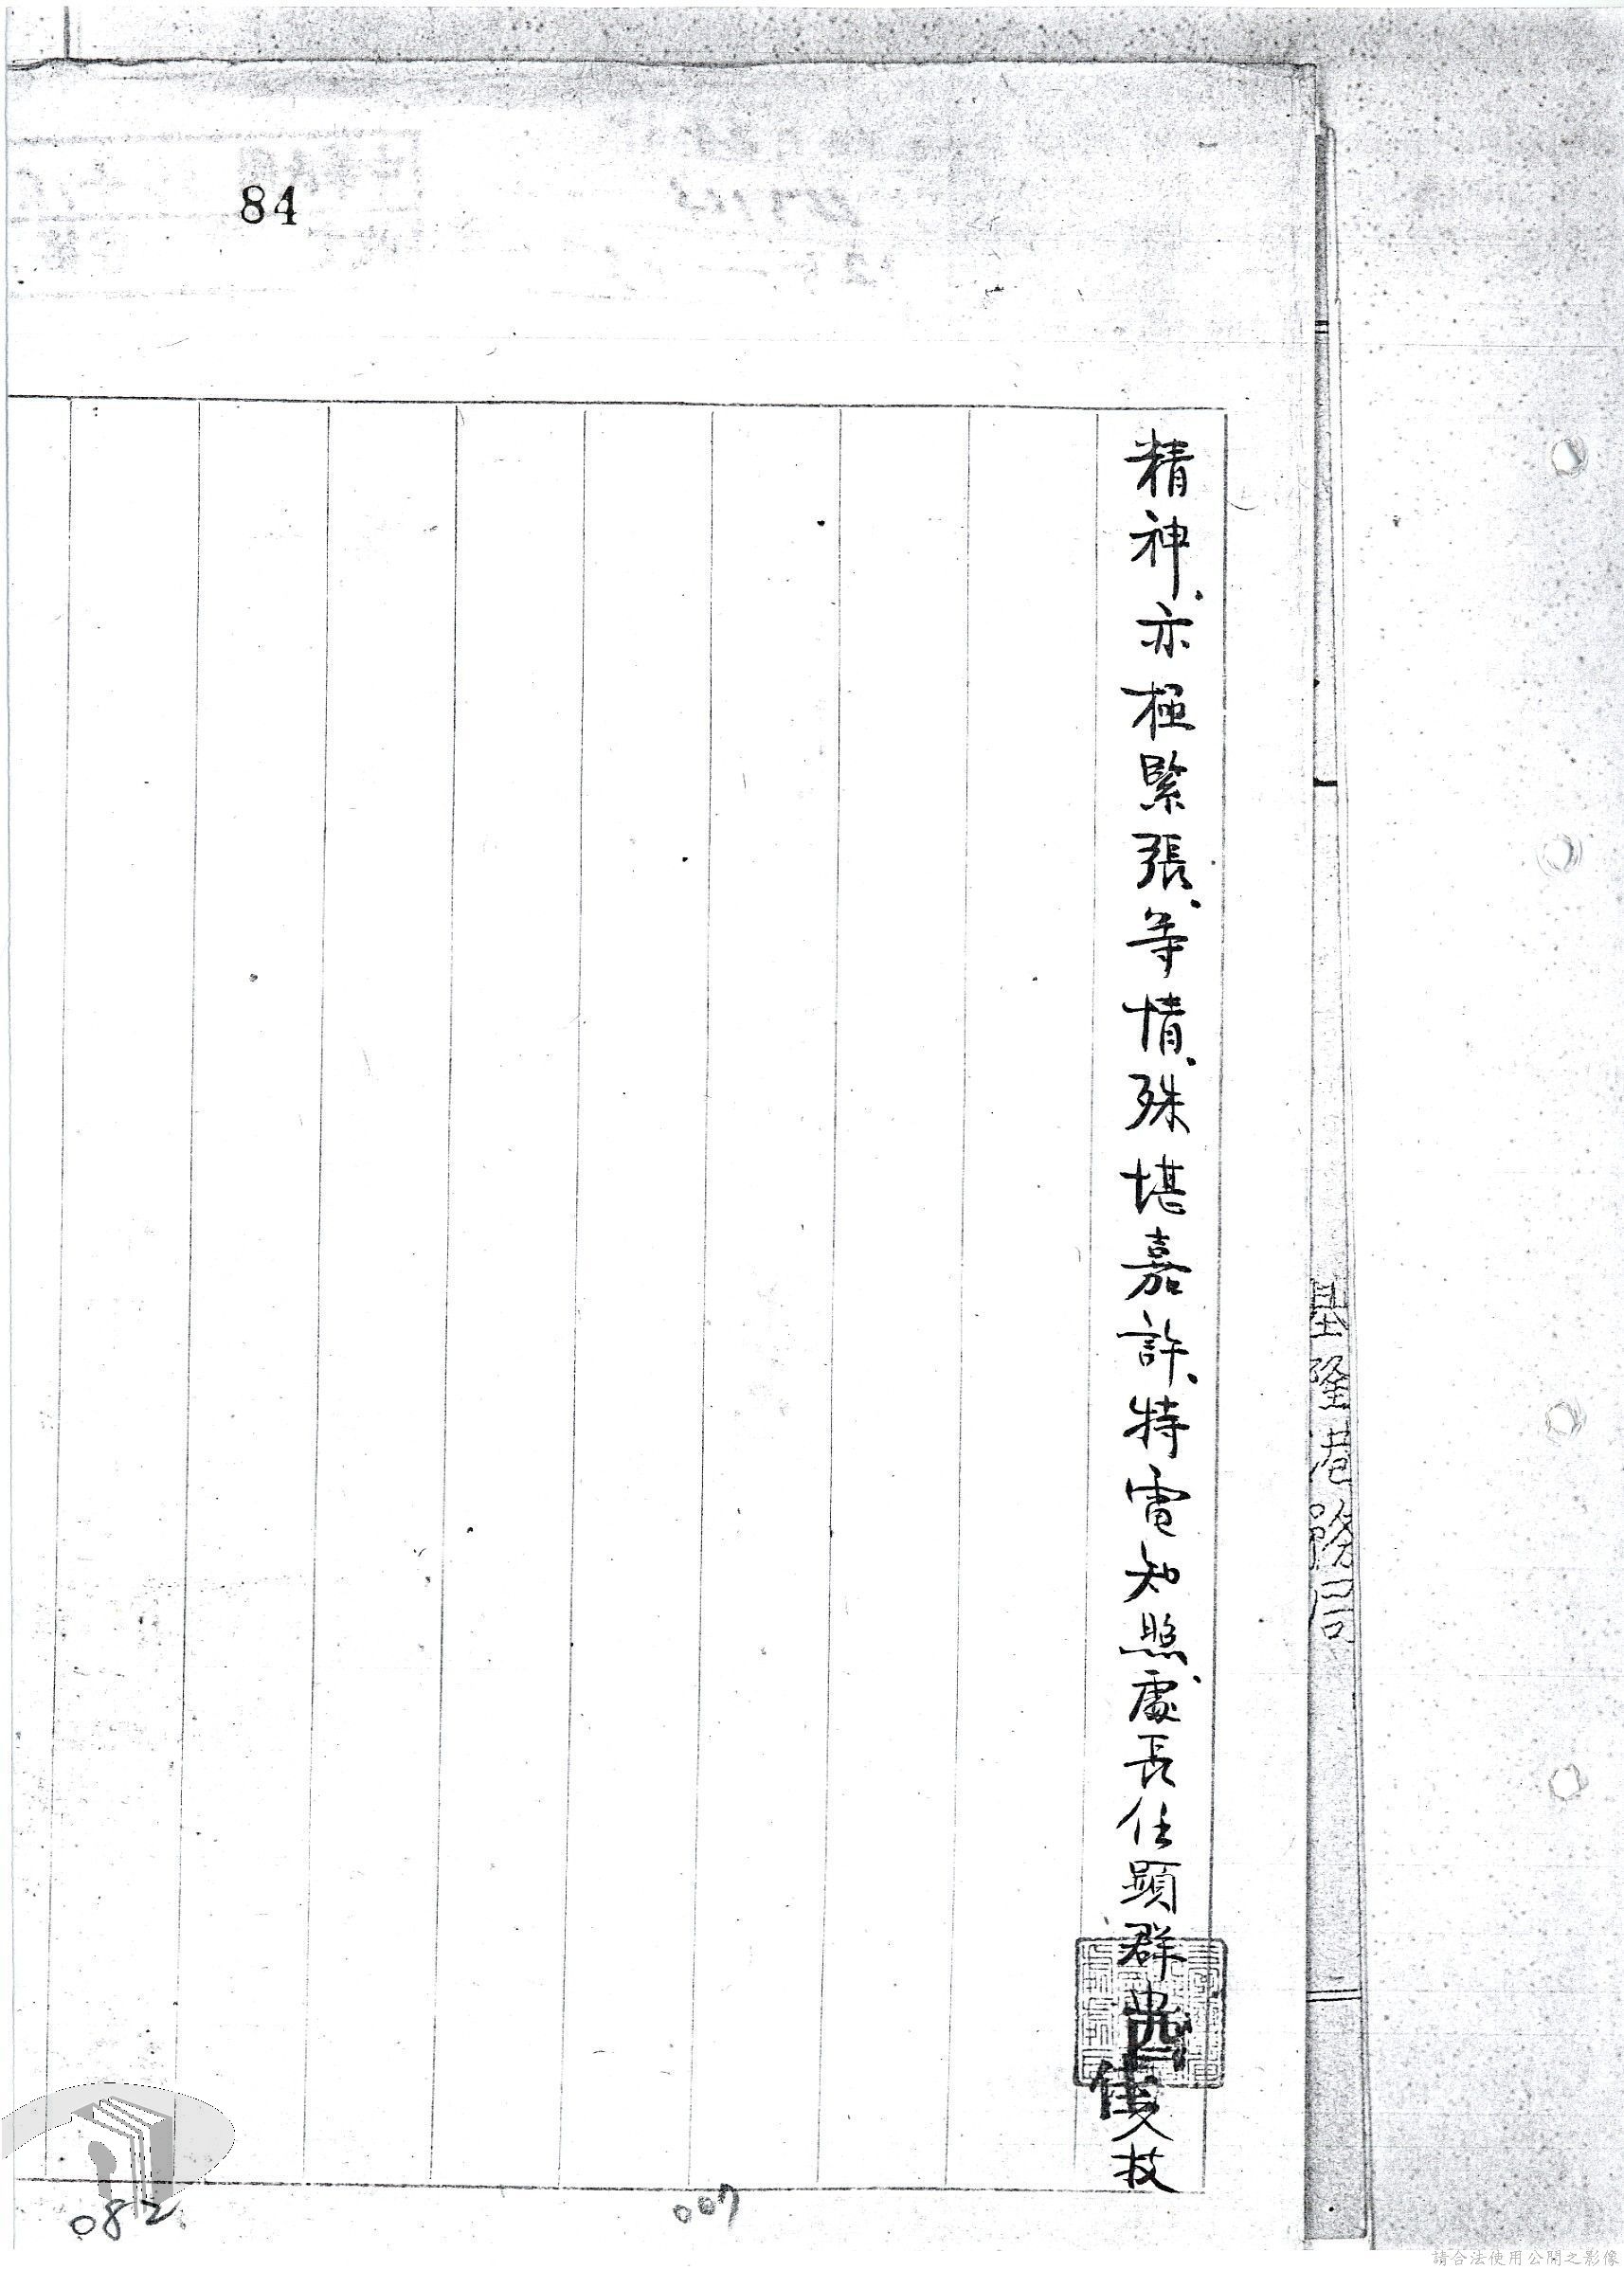 84
精神、亦極緊張、等情、殊堪嘉許、特電知照、處長任顯群
技
基隆港務局
082
007
請合法使用公開之影像